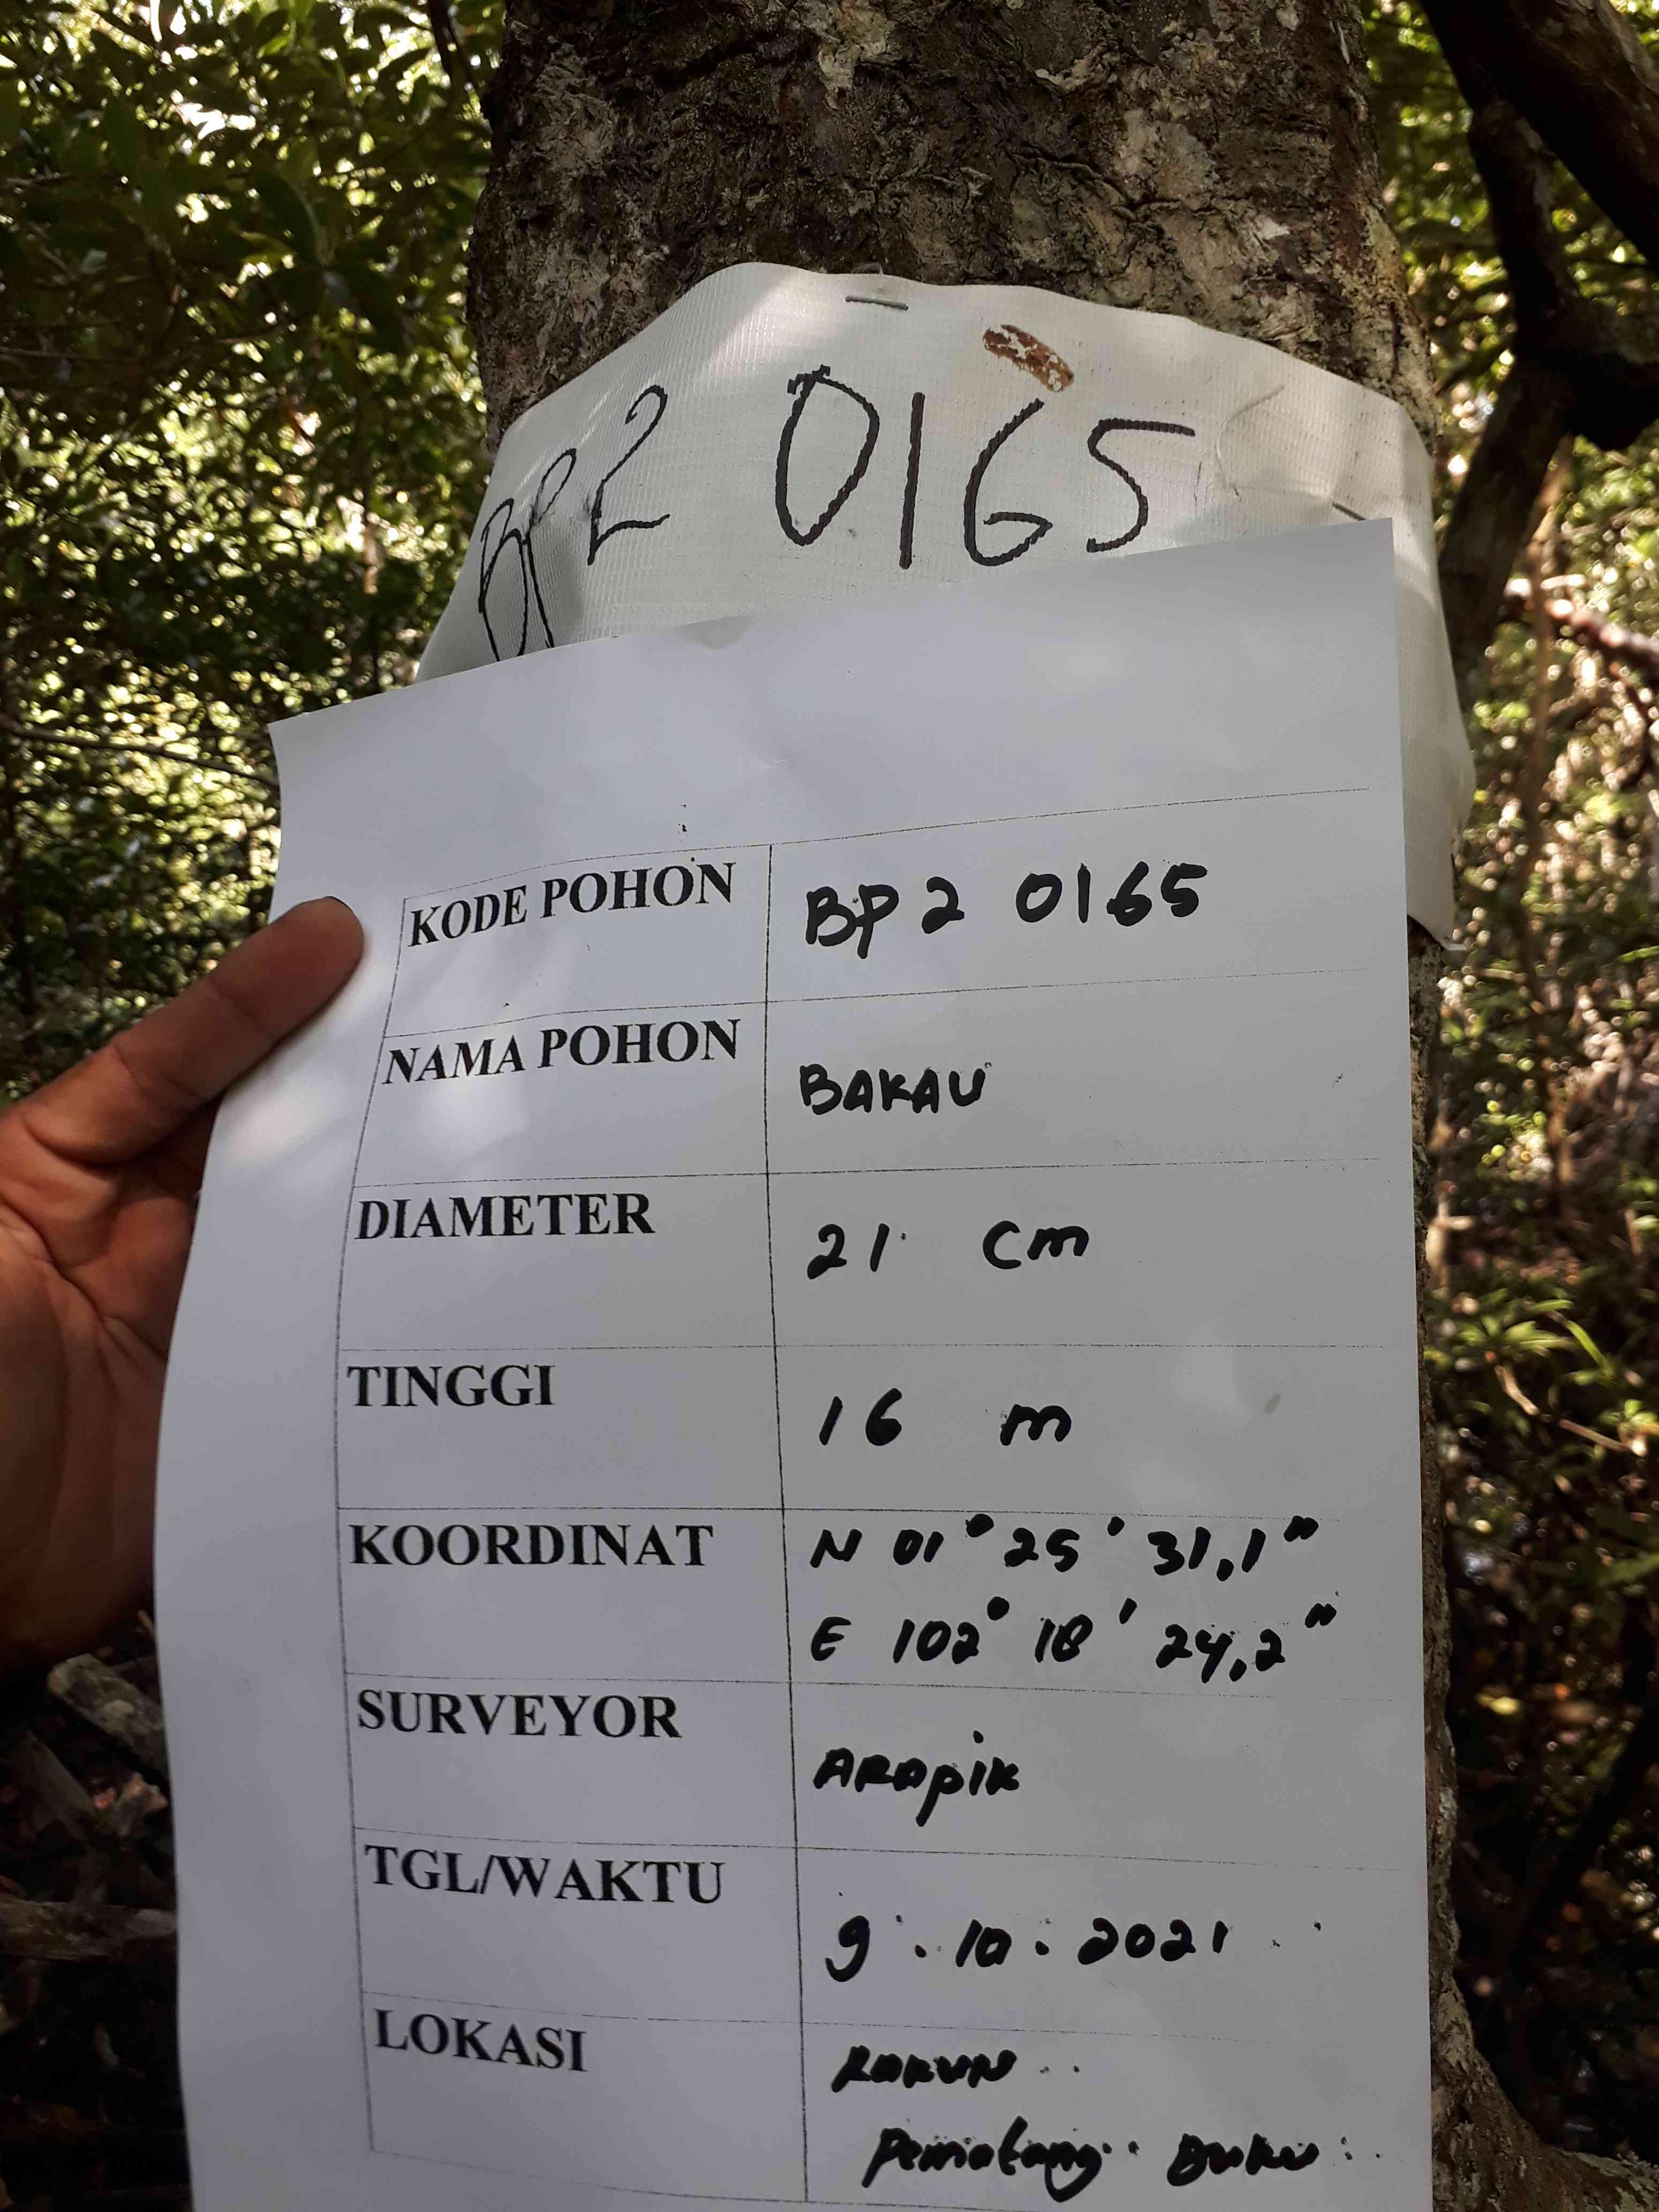 BP2 0165
KODE POHON BP2 0165
NAMA POHON BAKAU
DIAMETER 21 cm
TINGGI 16 m
KOORDINAT N 01° 25' 31,1"
E 102° 18' 24,2"
SURVEYOR ARAPIK
TGL/WAKTU 9.10.2021
LOKASI
Pematang Duku